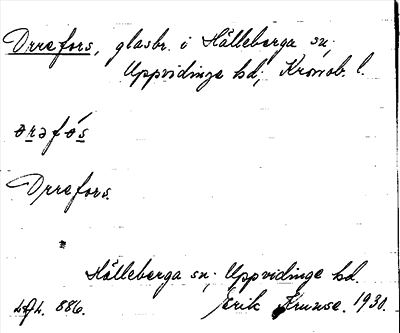 Orrefors, glasbr. i Hälleberga sn;
Uppvidinge hd; Kronob. l.
ɵrəfɵ́s
Orrefors.
Hälleberga sn; Uppvidinge hd.
LAL. 886. Erik 1930.